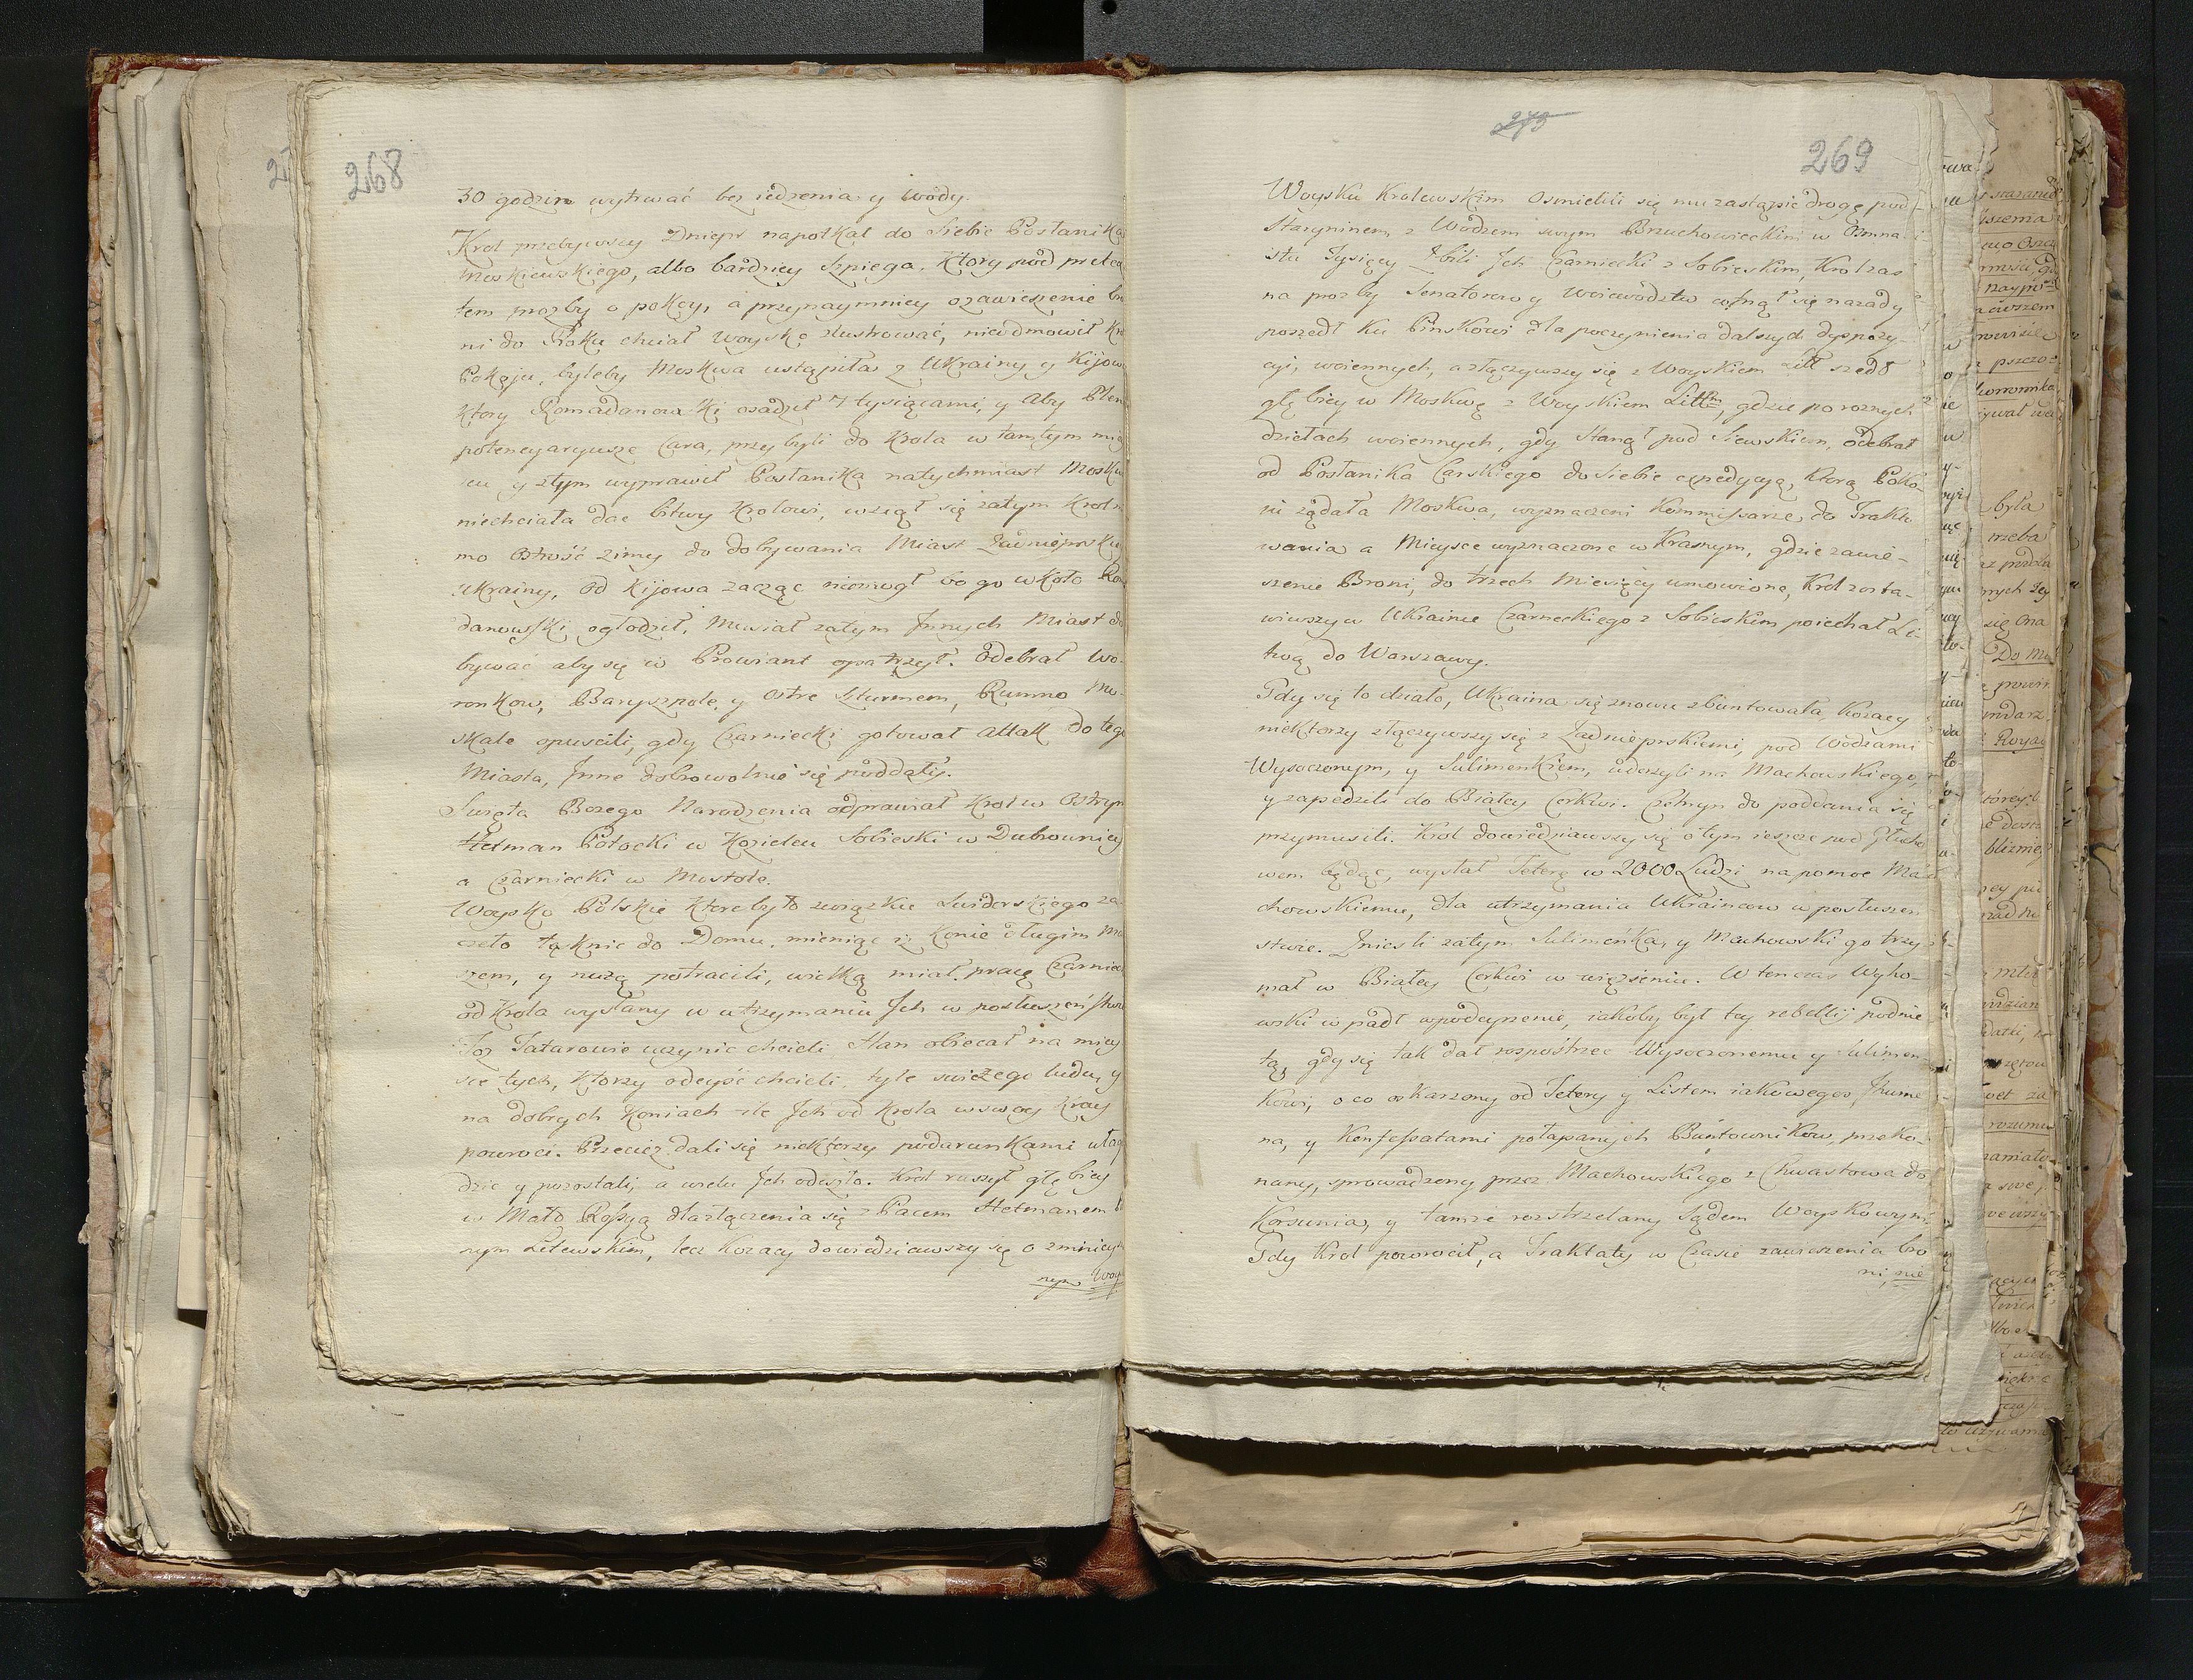 268
30 godzin wytrwać bez iedzenia y wody.
Krol przebywszy Dniepr napotkał do Siebie Posłanika
Moskiewskiego, albo bardziey Szpiega, Ktory pod pretex
tem prozby o pokoy, a przynaymniey ozawieszenie bro
ni do Roku chciał Woysko zlustrować, nieodmowił Kro
Pokoju, byleby Moskwa ustąpiła z Ukrainy y Kijow
Ktory Romadanowski osadził 7 tysiącami, y aby Pleni
potencyaryusze Cara, przybyli do Krola w tamtym mie
scu y ztym wyprawił Posłanika natychmiast Moskw
niechciała dac bitwy Krolowi, wziął się zatym Krol
mo ostrość zimy do dobywania Miast Zadnieprskiey
Ukrainy, od Kijowa zacząc niemogł bo go wkoło Ro
danowski ogłodził. Musiał zatym Innych Miast do
bywać aby się w Prowiant opatrzył. Odebrał Wo-
ronkow, Baryszpole, y Ostre Szturmem, Rumno Mo-
skale opuscili, gdy Czarniecki gotował Attak do tego
Miasta, Inne dobrowolnie się poddały.
Swięta Bozego Narodzenia odprawiał Krol w Ostrym
Hetman Potocki w Kozielcu Sobieski w Dubrownicy
a Czarniecki w Mostole.
Woysko Polskie ktore było związku Swiderskiego za
czeło tęknic do Domu, mieniąc iż Konie długim Mar
szem, y nużą potracili, wielką miał pracę Czarniec
od Krola wysłany w utrzymaniu Jch w posłuszeństw
Toż Tatarowie uczynic chcieli, Han obiecał na miey
sce tych, Ktorzy odeyść chcieli, tyle swieżego ludu, y
na dobrych Koniach ile Jch od Krola wswoy Kray
powroci. Przecież dali się niektorzy podarunkami ułago
dzic y pozostali, a wielu Jch odeszło. Krol ruszył głębiey
w Małą Rossyą dla złączenia się z Pacem Hetmanem
nym Litewskim, lecz Kozacy dowiedziawszy się o zmnieyszo
nym Woy
273
269
Woysku Krolewskim Osmielili się mu zastąpic drogę pod
Staryninem z Wodzem swym Bruchowieckim w Osmna-
istu Tysięcy Zbili Jch Czarniecki z Sobieskim, Krol zas
na prozby Senatorow y Woiewodztw cofnął się nazad y
poszedł Ku Pinskowi dla poczynienia dalszych dyspozy-
cyi, woiennych, a złączywszy się z Woyskiem Litt szedł
głębiey w Moskwę z Woyskiem Littm, gdzie po roznych
dziełach woiennych, gdy Stanął pod Siewskiem, odebrał
od Posłanika Carskiego do Siebie expedycyą, Ktorą Poko-
iu ządała Moskwa, wyznaczeni Kommissarze, do Trakto
wania a Mieysce wyznaczone w Krasnym, gdzie zawie-
szenie Broni, do trzech Miesięcy umowione, Krol zosta-
wiwszy w Ukrainie Czarneckiego z Sobieskim poiechał Li-
twą do Warszawy.
Gdy się to działo, Ukraina się znowu zbuntowała, Kozacy
niektorzy złączywszy się z Zadnieprskiemi, pod Wodzami
Wysoczonym, y Sulimenkiem, uderzyli na Machowskiego,
y zapedzili do Białey Cerkwi. Czehryn do poddania się
przymusili. Krol dowiedziawszy się o tym ieszcze pod Głucho
wem będąc, wysłał Teterę w 2000 Ludzi na pomoc Ma
chowskiemu, dla utrzymania Ukraincow w posłuszen
stwie. Zniesli zatym Sulimeńka, y Machowski go trzy
mał w Białey Cerkwi w więzieniu. W tenczas Wyho-
wski wpadł wpodeyrzenie, iakoby był tey rebellij podnie
tą, gdy się tak dał rozpostrzec Wysoczonemu y Sulimen
Kowi, o co oskarzony od Tetery y Listem iakowegos Jhume
na, y Konfessatami połapanych Buntownikow, przeko-
nany, sprowadzony przez Machowskiego z Chwastowa do
Korsunia, y tamze rozstrzelany Sądem Woyskowym.
Gdy Krol powrocił, a Traktaty w Czasie zawieszenia bro
ni, nie